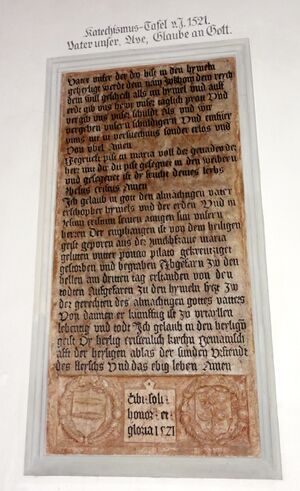 Katechismus-Tafel v. J. 1521.
Vater unser, Ave, Glaube an Gott.
Vater unser der du bist in den hymeln
geheyligt werde dein nam zukhom dein reych
dein will geschech als im hymel und auff
erdt gib uns heut unser täglich prot Und
vergib uns unser schuldt Als und wir
vergeben unsern schuldigern Und einfuer
uns nit in versuechung sonder erlos uns
von übel Amen
Gegruest pist du maria voll der genaden der
herr mit dir du pist gesegent in den weibern
und gesegent ist die frucht deines leybs
Jhesus cristus Amen
Ich gelaub in got den almächtigen vatter
beschopher hymels und der erden Und in
Jesum cristum seinen ainigen sun unsern
herrn Der emphangen ist von dem heyligen
geist geporn aus der Junckhfraue maria
geliten unter pontio pilato gekreuziget
gestorben und begraben Abgefarn zu den
hellen am driten tag erstanden von den
todten Aufgefaren zu den hymeln sizt zu
der gerechten des almachtigen gottes vatters
Von dannen er künfftig ist zu urtayllen
lebentig und todt Ich gelaub in den heyligen
geist Dy heylig cristenlich kirchn gemainsch
afft der heyligen ablas der sunden Urstendt
des fleyschs Und das ebig leben Amen
tibi soli
honor et
gloria 1521